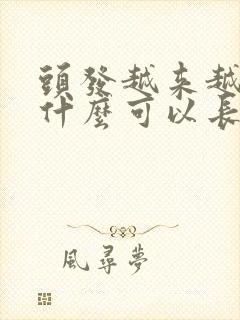 頭發越來越
什麼可以長
風尋夢